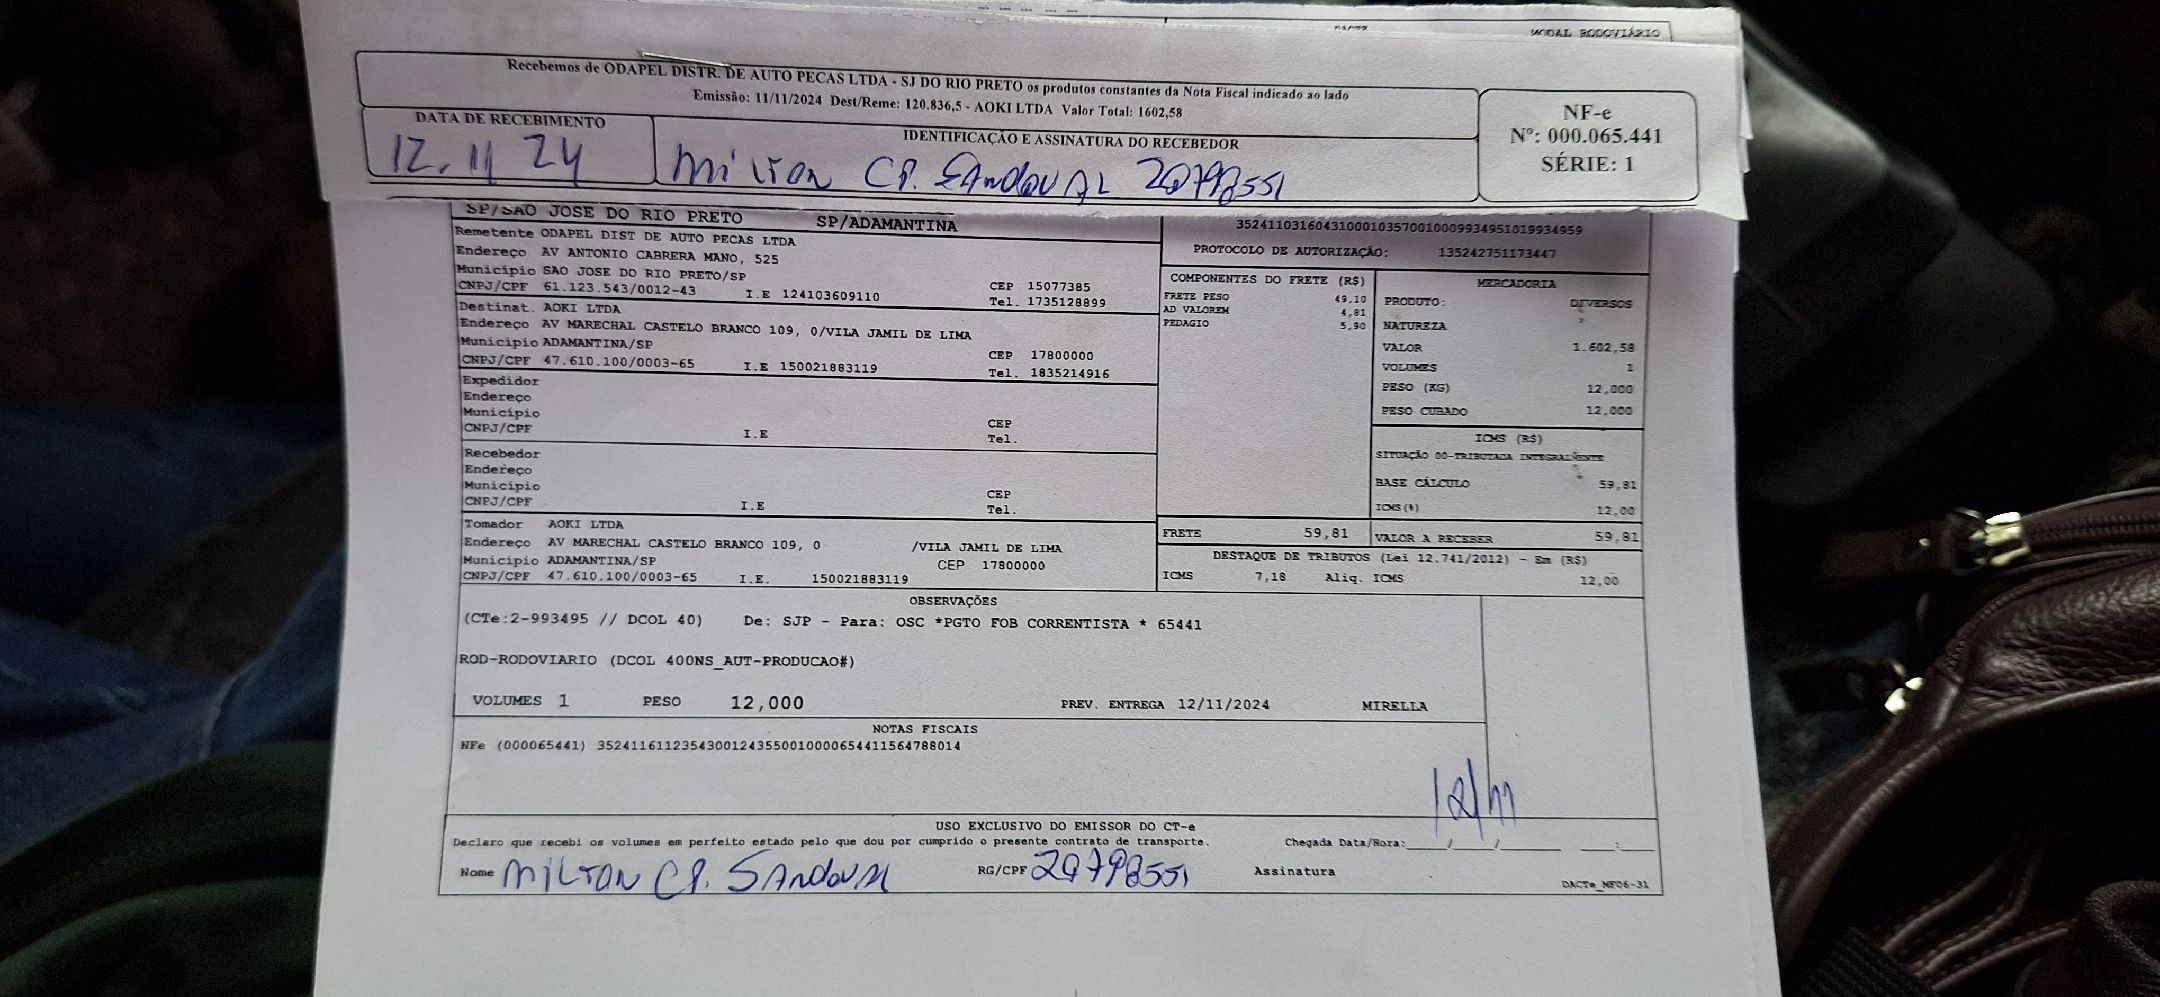 MODAL RODOVIÁRIO
Recebemos de ODAPEL DISTR. DE AUTO PECAS LTDA - SJ DO RIO PRETO os produtos constantes da Nota Fiscal indicado ao lado
Emissão: 11/11/2024 Dest/Reme: 120.836,5 - AOKI LTDA Valor Total: 1602,58
NF-e
Nº: 000.065.441
SÉRIE: 1
DATA DE RECEBIMENTO
12.11 24
IDENTIFICAÇÃO E ASSINATURA DO RECEBEDOR
Milton CP. SANDOVAL 20798551
SP/SAO JOSE DO RIO PRETO SP/ADAMANTINA
Remetente ODAPEL DIST DE AUTO PECAS LTDA
Endereço AV ANTONIO CABRERA MANO, 525
Município SAO JOSE DO RIO PRETO/SP CEP 15077385
CNPJ/CPF 61.123.543/0012-43 I.E 124103609110 Tel. 1735128899
Destinat. AOKI LTDA
Endereço AV MARECHAL CASTELO BRANCO 109, 0/VILA JAMIL DE LIMA
Município ADAMANTINA/SP CEP 17800000
CNPJ/CPF 47.610.100/0003-65 I.E 150021883119 Tel. 1835214916
Expedidor
Endereço
Município CEP
CNPJ/CPF I.E Tel.
Recebedor
Endereço
Município CEP
CNPJ/CPF I.E Tel.
Tomador AOKI LTDA
Endereço AV MARECHAL CASTELO BRANCO 109, 0 /VILA JAMIL DE LIMA
Município ADAMANTINA/SP CEP 17800000
CNPJ/CPF 47.610.100/0003-65 I.E. 150021883119
35241103160431000103570010009934951019934959
PROTOCOLO DE AUTORIZAÇÃO: 135242751173447
COMPONENTES DO FRETE (R$)
FRETE PESO 49,10
AD VALOREM 4,81
PEDAGIO 5,90
MERCADORIA
PRODUTO: DIVERSOS
NATUREZA
VALOR 1.602,58
VOLUMES 1
PESO (KG) 12,000
PESO CUBADO 12,000
ICMS (R$)
SITUAÇÃO 00-TRIBUTADA INTEGRALMENTE
BASE CÁLCULO 59,81
ICMS(%) 12,00
FRETE 59,81 VALOR A RECEBER 59,81
DESTAQUE DE TRIBUTOS (Lei 12.741/2012) - Em (R$)
ICMS 7,18 Aliq. ICMS 12,00
OBSERVAÇÕES
(CTe:2-993495 // DCOL 40) De: SJP - Para: OSC *PGTO FOB CORRENTISTA * 65441
ROD-RODOVIARIO (DCOL 400NS_AUT-PRODUCAO#)
VOLUMES 1 PESO 12,000 PREV. ENTREGA 12/11/2024 MIRELLA
NOTAS FISCAIS
NFe (000065441) 35241161123543001243550010000654411564788014
12/11
USO EXCLUSIVO DO EMISSOR DO CT-e
Declaro que recebi os volumes em perfeito estado pelo que dou por cumprido o presente contrato de transporte. Chegada Data/Hora:____/____/______ ___:___
Nome MILTON CP. SANDOVAL RG/CPF 20798551 Assinatura
DACTe_MF06-31